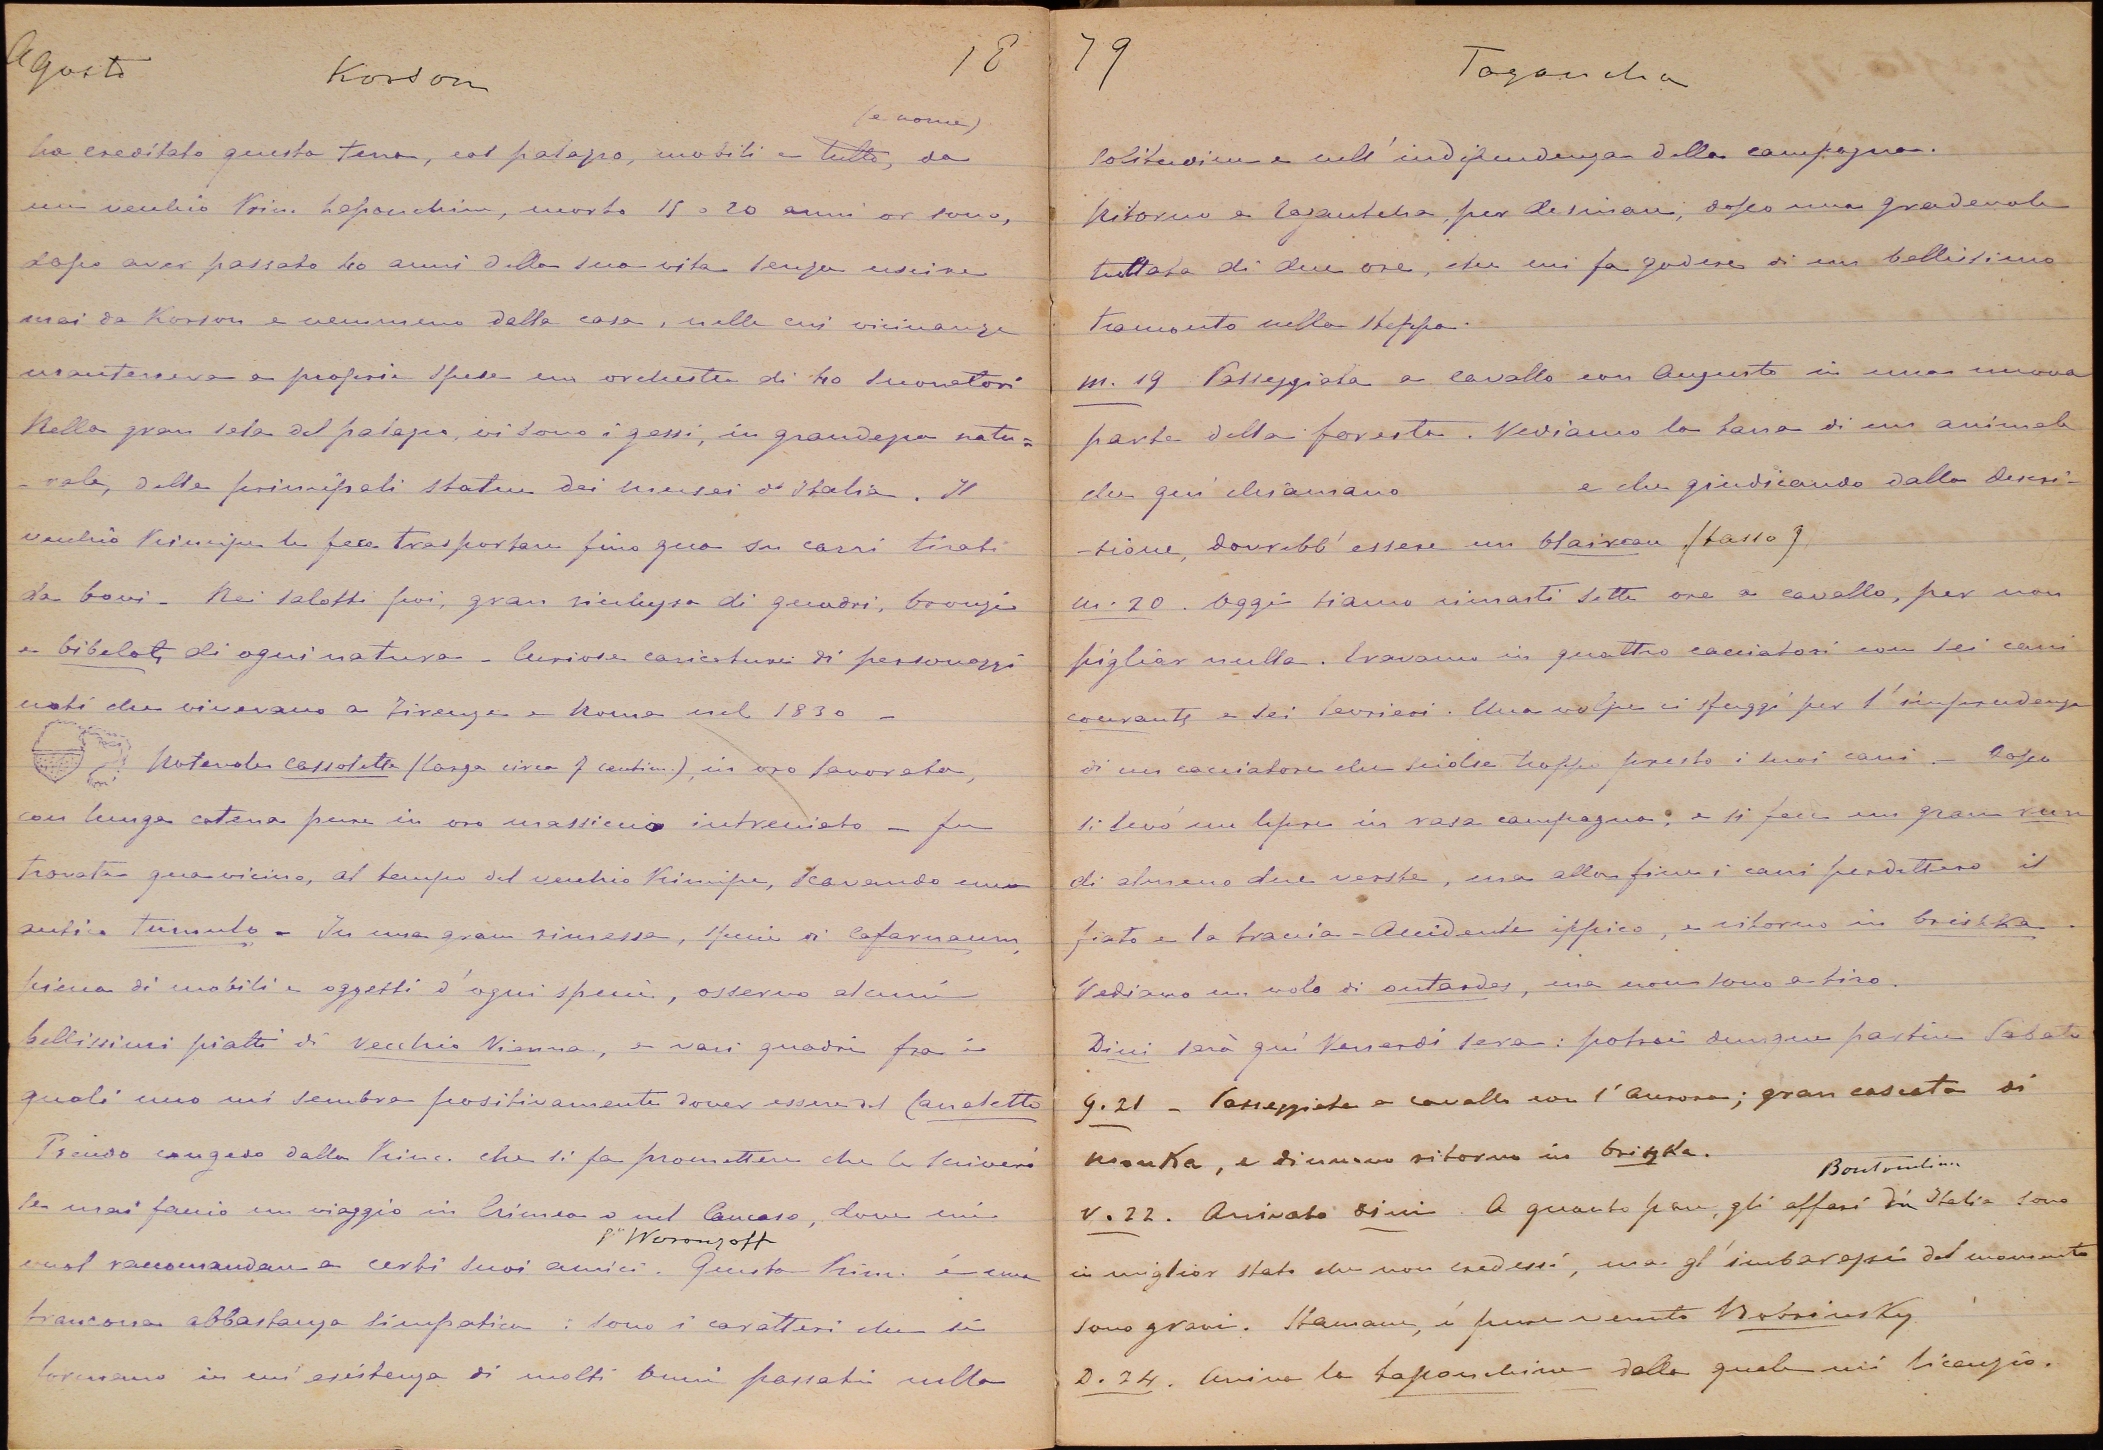 Agosto Korson 18
(e nome)
ha ereditato questa terra, col palazzo, mobili e tutto, da
un vecchio Princ. Lapouchine, morto 15 o 20 anni or sono,
dopo aver passato 40 anni della sua vita senza uscire
mai da Korson e nemmeno dalla casa, nelle cui vicinanze
manteneva a proprie spese un orchestra di 40 suonatori
Nella gran sala del palazzo, vi sono i gessi, in grandezza natu=
-rale, delle principali statue dei musei d'Italia. Il
vecchio Principe le fece trasportare fino qua su carri tirati
da bovi - Nei salotti poi, gran ricchezza di quadri, bronzi
e bibelots di ogni natura - Curiose caricature di personaggi
noti che vivevano a Firenze e Roma nel 1830 -
Notevole cassolette (larga circa 7 centim.), in oro lavorato,
con lunga catena pure in oro massiccio intrecciato - fu
trovata qua vicino, al tempo del vecchio Principe, scavando un
antico tumulo - In una gran rimessa, specie di Cafarnaum,
piena di mobili e oggetti d'ogni specie, osservo alcuni
bellissimi piatti di Vecchio Vienna, e vari quadri fra i
quali uno mi sembra positivamente dover essere del Canaletto
Prendo congedo dalla Princ. che si fa promettere che le scriverò
se mai faccio un viaggio in Crimea o nel Caucaso, dove mi
Woronzoff
vuol raccomandare a certi suoi amici. Questa Princ. è una
trancona abbastanza simpatica: sono i caratteri che si
formano in un'esistenza di molti anni passati nella
79 Tagancha
solitudine e nell'indipendenza della campagna.
Ritorno a Tagantcha, per desinare, dopo una gradevole
trottata di due ore, che mi fa godere di un bellissimo
tramonto nella steppa.
M. 19 Passeggiata a cavallo con Augusto in una nuova
parte della foresta. Vediamo la tana di un animale
che qui chiamano e che giudicando dalla descri-
-zione, dovrebb'essere un blaireau (tasso)
M. 20. Oggi siamo rimasti sette ore a cavallo, per non
pigliar nulla. Eravamo in quattro cacciatori con sei cani
courants e sei levrieri. Una volpe ci sfuggì per l'imprudenza
di un cacciatore che sciolse troppo presto i suoi cani - Dopo
si levò un lepre in rasa campagna, e si fece un gran run
di almeno due verste, ma alla fine i cani perdettero il
fiato e la traccia - Accidente ippico, e ritorno in briska.
Vediamo un volo di outardes, ma non sono a tiro.
Dini sarà qui Venerdì sera: potrò dunque partire Sabato
G. 21 - Passeggiata a cavallo con l'Aurora; gran cascata di
Mouka, e dinuovo ritorno in briska.
Boutourline
V. 22. Arrivato Dini. A quanto pare, gli affari di Italia sono
in miglior stato che non credessi, ma gl'imbarazzi del momento
sono gravi. Stamane, è pure venuto Bobrinsky
D. 24. Arriva la Lapouchine dalla quale mi licenzio.